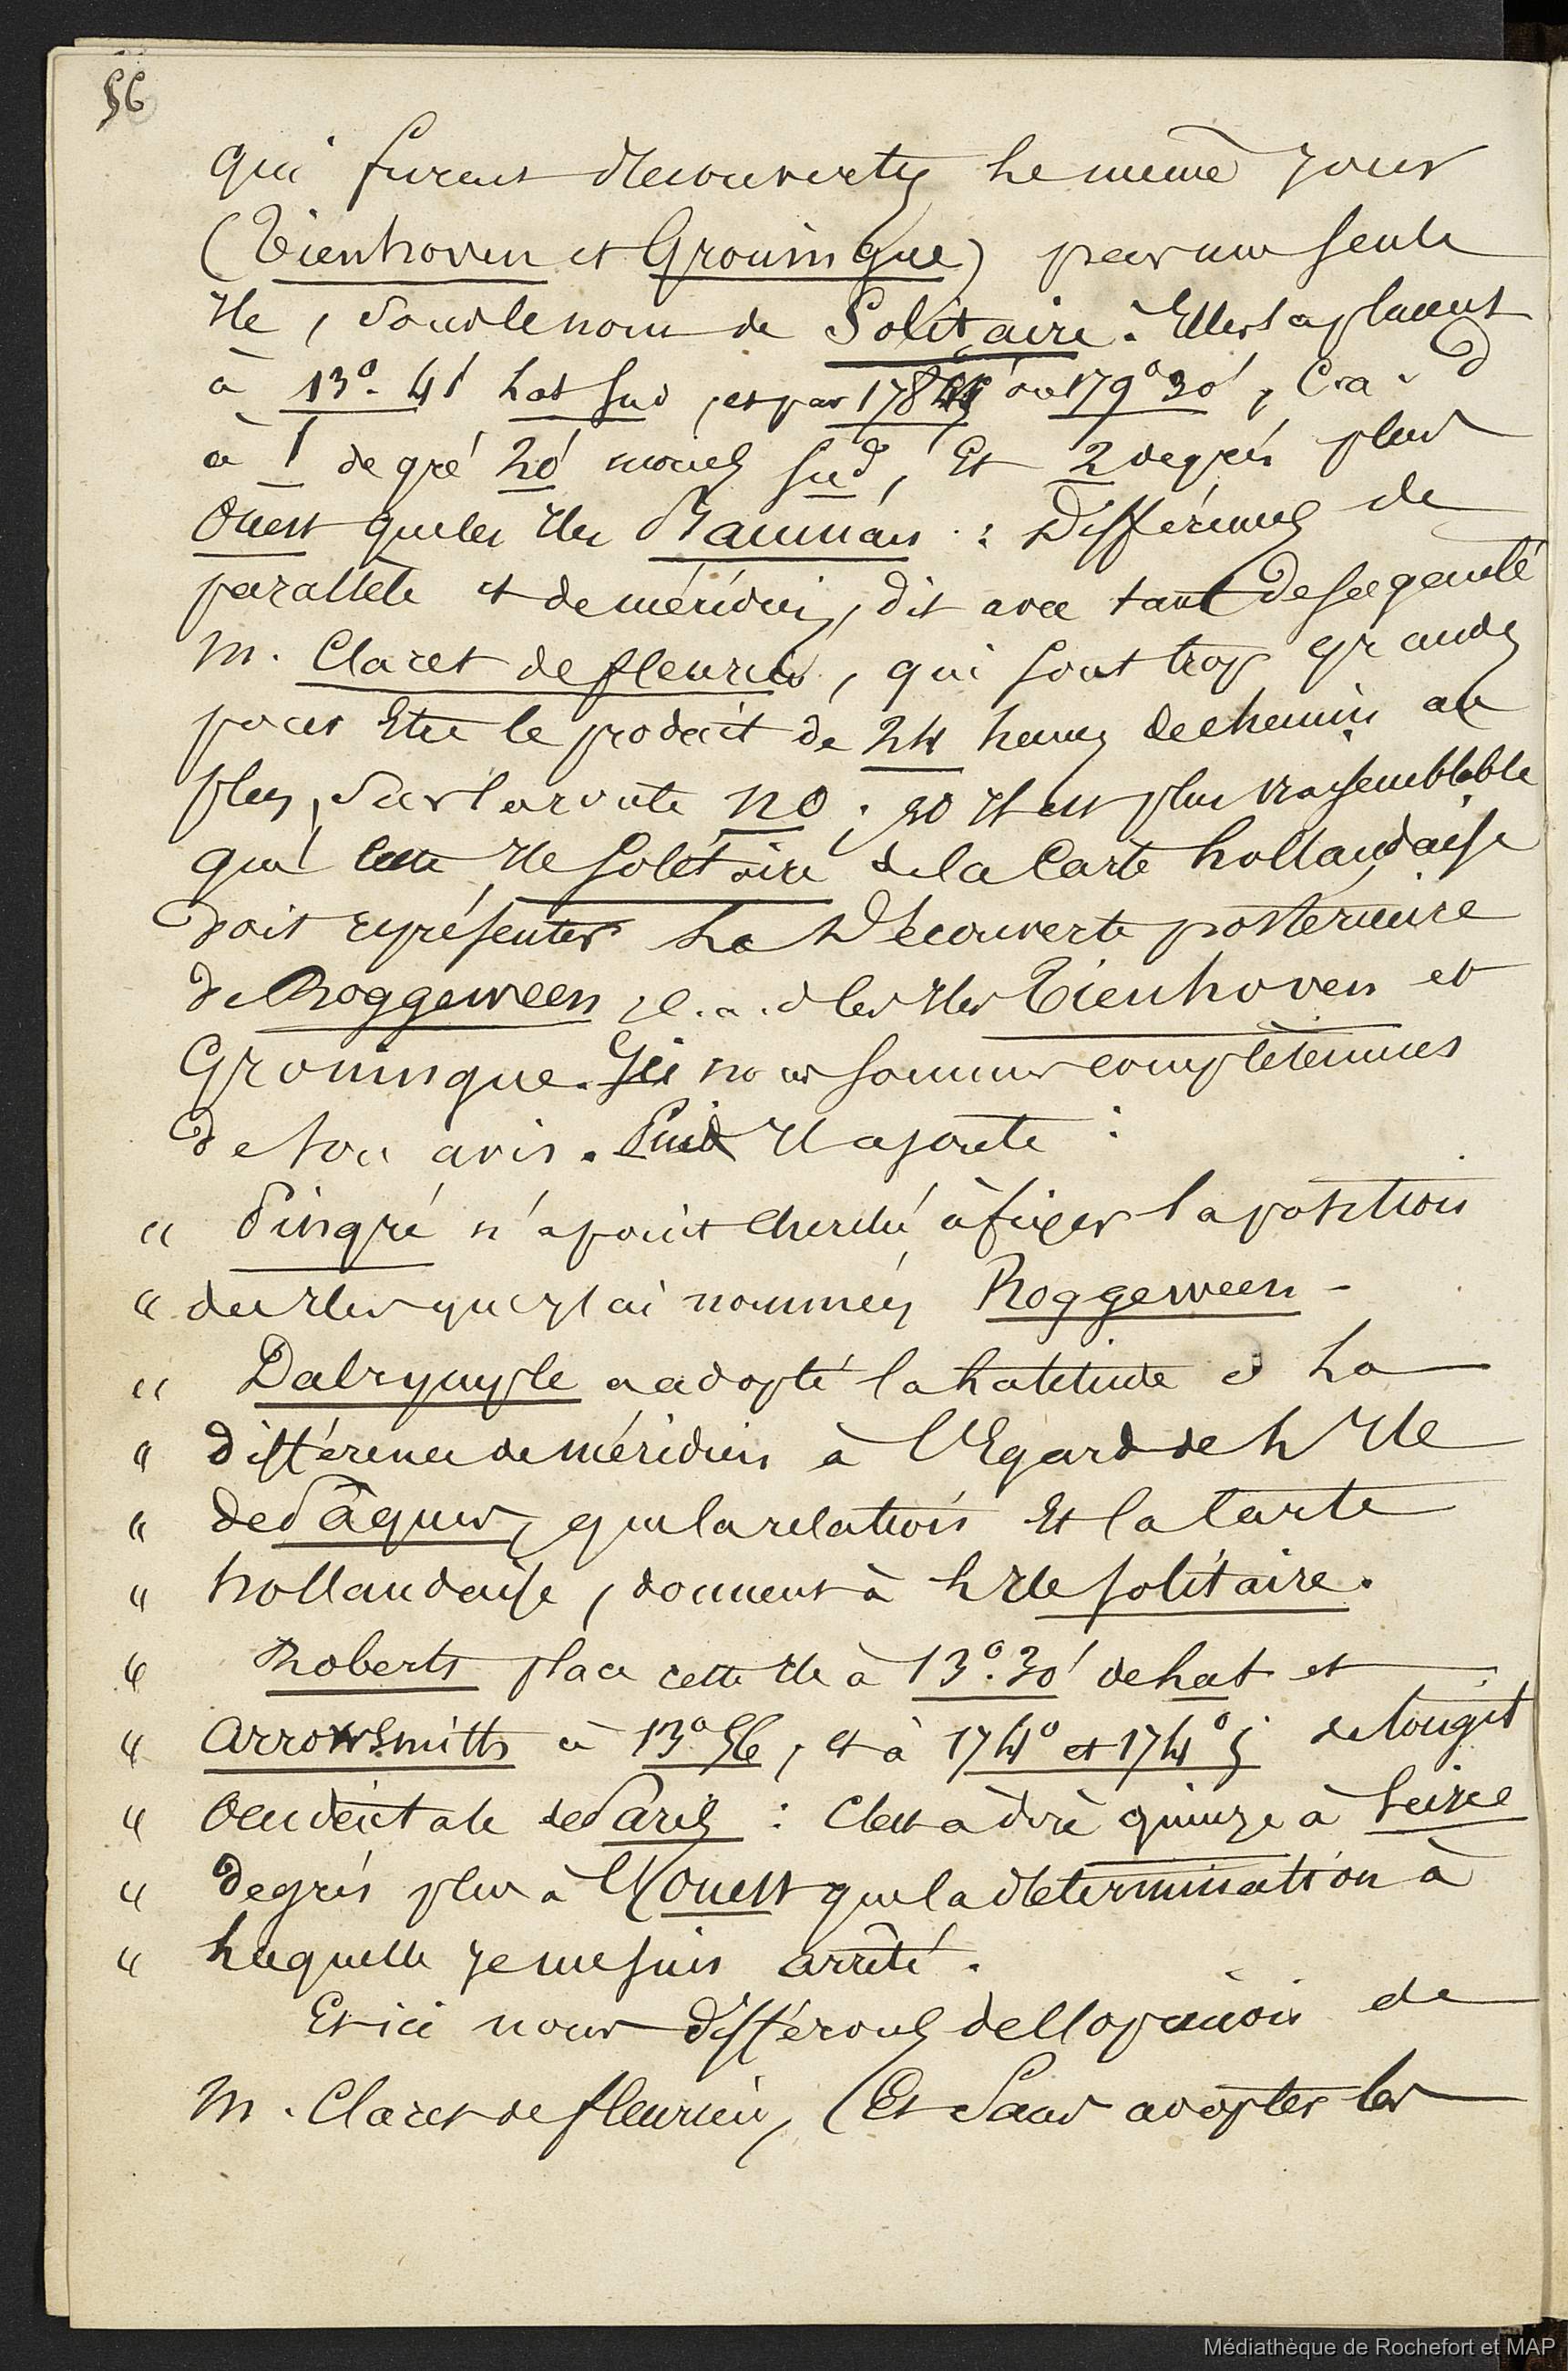 56
qui furent découvertes le même jour
(Tienhoven et Groningue) par une seule
Ile, sous le nom de Solitaire. Elles la placent
à 13°. 41' Lat Sud, et par 178° ou 179° 30', C. a. d
à 1 degré 20' moins Sud, Et 2 degrés plus
Ouest que les Iles Bauman : Différences de
parallèle et de méridien, dit avec tant de sagacité
M. Claret de fleurieu, qui sont trop grandes
pour Etre le produit de 24 heures de chemin au
plus, sur la route NO ; Il est plus vraisemblable
que cette Ile Solitaire de la Carte hollandaise
doit représenter La Découverte postérieure
de Roggeween, c. a. d les Iles Tienhoven et
Groningue. Ici nous sommes complètement
de son avis. Puis Il ajoute :
" Pingré n'a point cherché à fixer la position
" des Iles que j'ai nommées Roggeween -
" Dalrymple a adopté la Latitude & La
" différence de méridien à l'Egard de L'Ile
" de Pâques, que la relation Et la Carte
" hollandaise, donnent à L'Ile solitaire.
" Roberts place cette Ile à 13°. 30' de Lat et
" Arrowsmith à 13° 56, et à 174° et 174° ½ de longit
" Occidentale de Paris : C'est à dire quinze à Seize
" degrés plus à l'Ouest que la détermination à
" Laquelle je me suis arrêté.
Et ici nous différons de l'opinion de
M. Claret de fleurieu, (Et Sans adopter les
Médiathèque de Rochefort et MAP